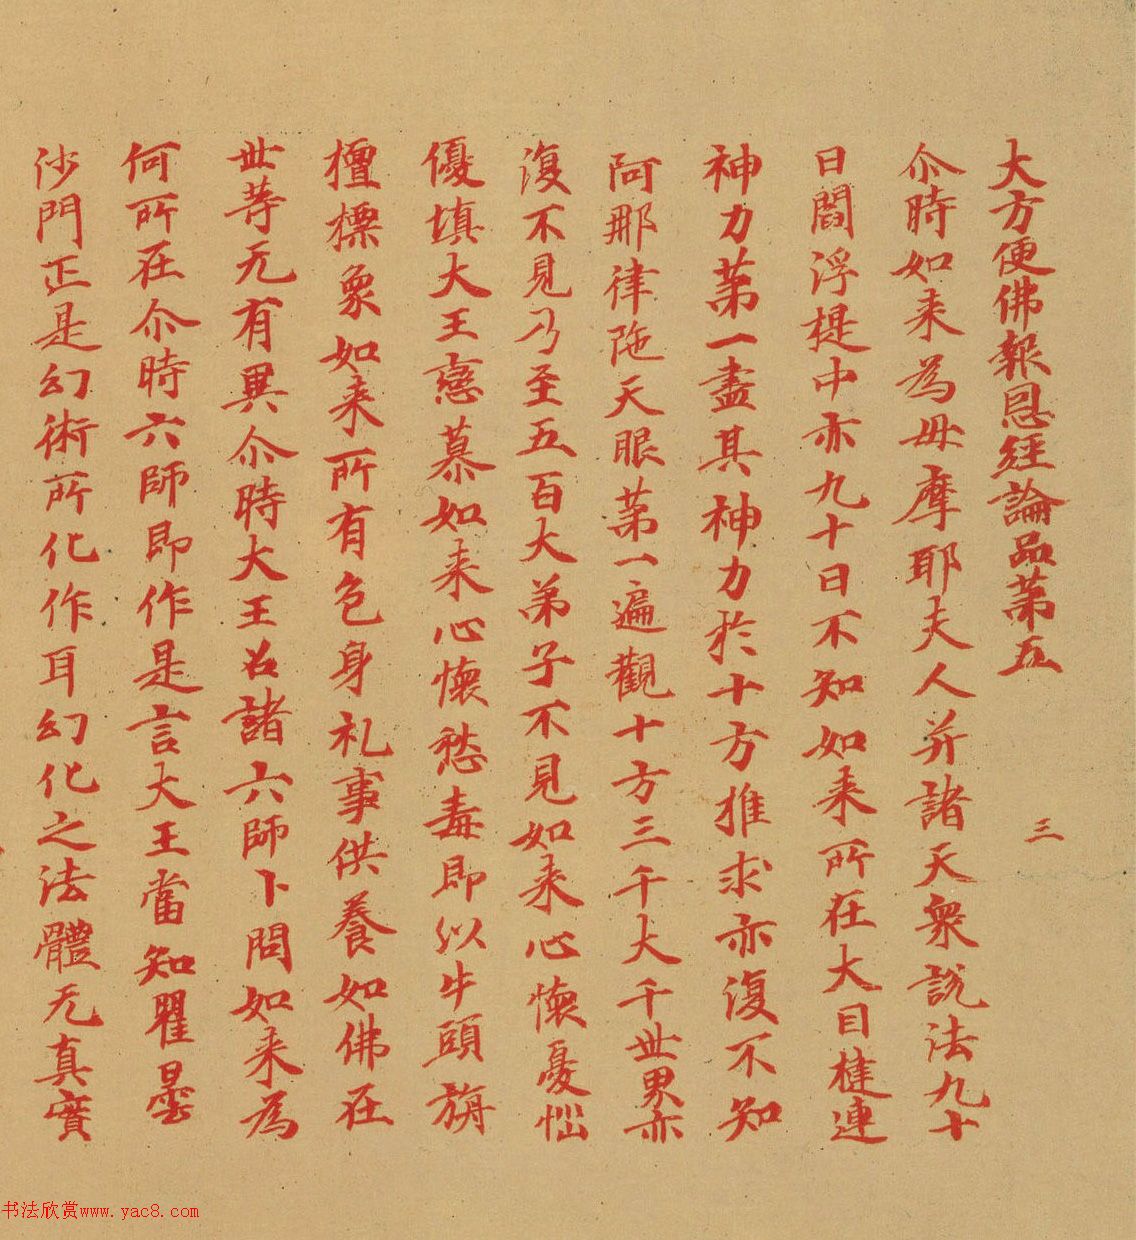 大方便佛報恩經論品苐五
三
尒時如来為母摩耶夫人并諸天衆說法九十
日閻浮提中亦九十日不知如来所在大目揵連
神力苐一盡其神力於十方推求亦復不知
阿那律陁天眼苐一遍觀十方三千大千世界亦
復不見乃至五百大弟子不見如来心懷憂惱
優填大王戀慕如来心懷愁毒即以牛頭旃
檀摽象如来所有色身礼事供養如佛在
世等无有異尒時大王召諸六師卜問如来為
何所在尒時六師即作是言大王當知瞿曇
沙門正是幻術所化作耳幻化之法體无真實
书法欣赏www.yac8.com